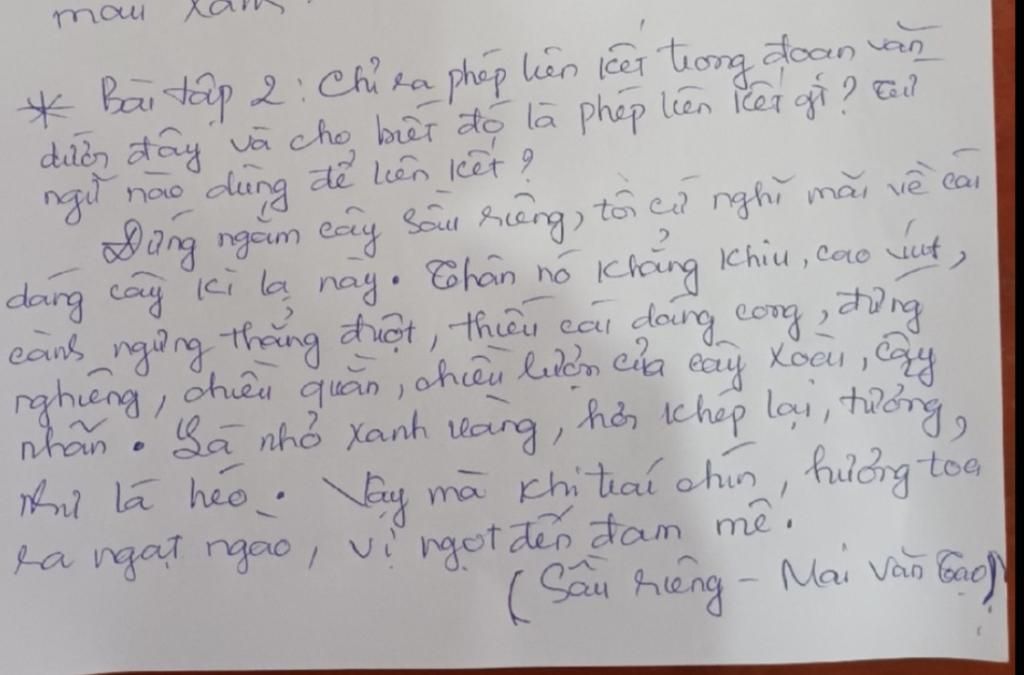 màu xám
* Bài tập 2: Chỉ ra phép liên kết trong đoạn văn
dưới đây và cho biết đó là phép liên kết gì? Từ
ngữ nào dùng để liên kết?
Đứng ngắm cây sầu riêng, tôi cứ nghĩ mãi về cái
dáng cây kì lạ này. Thân nó khẳng khiu, cao vút,
cành ngang thẳng đuột, thiếu cái dáng cong, dáng
nghiêng, chiều quằn, chiều lượn của cây xoài, cây
nhãn. Lá nhỏ xanh vàng, hơi khép lại, tưởng
như lá héo. Vậy mà khi trái chín, hương toả
ra ngạt ngào, vị ngọt đến đam mê.
(Sầu riêng - Mai Văn Tạo)